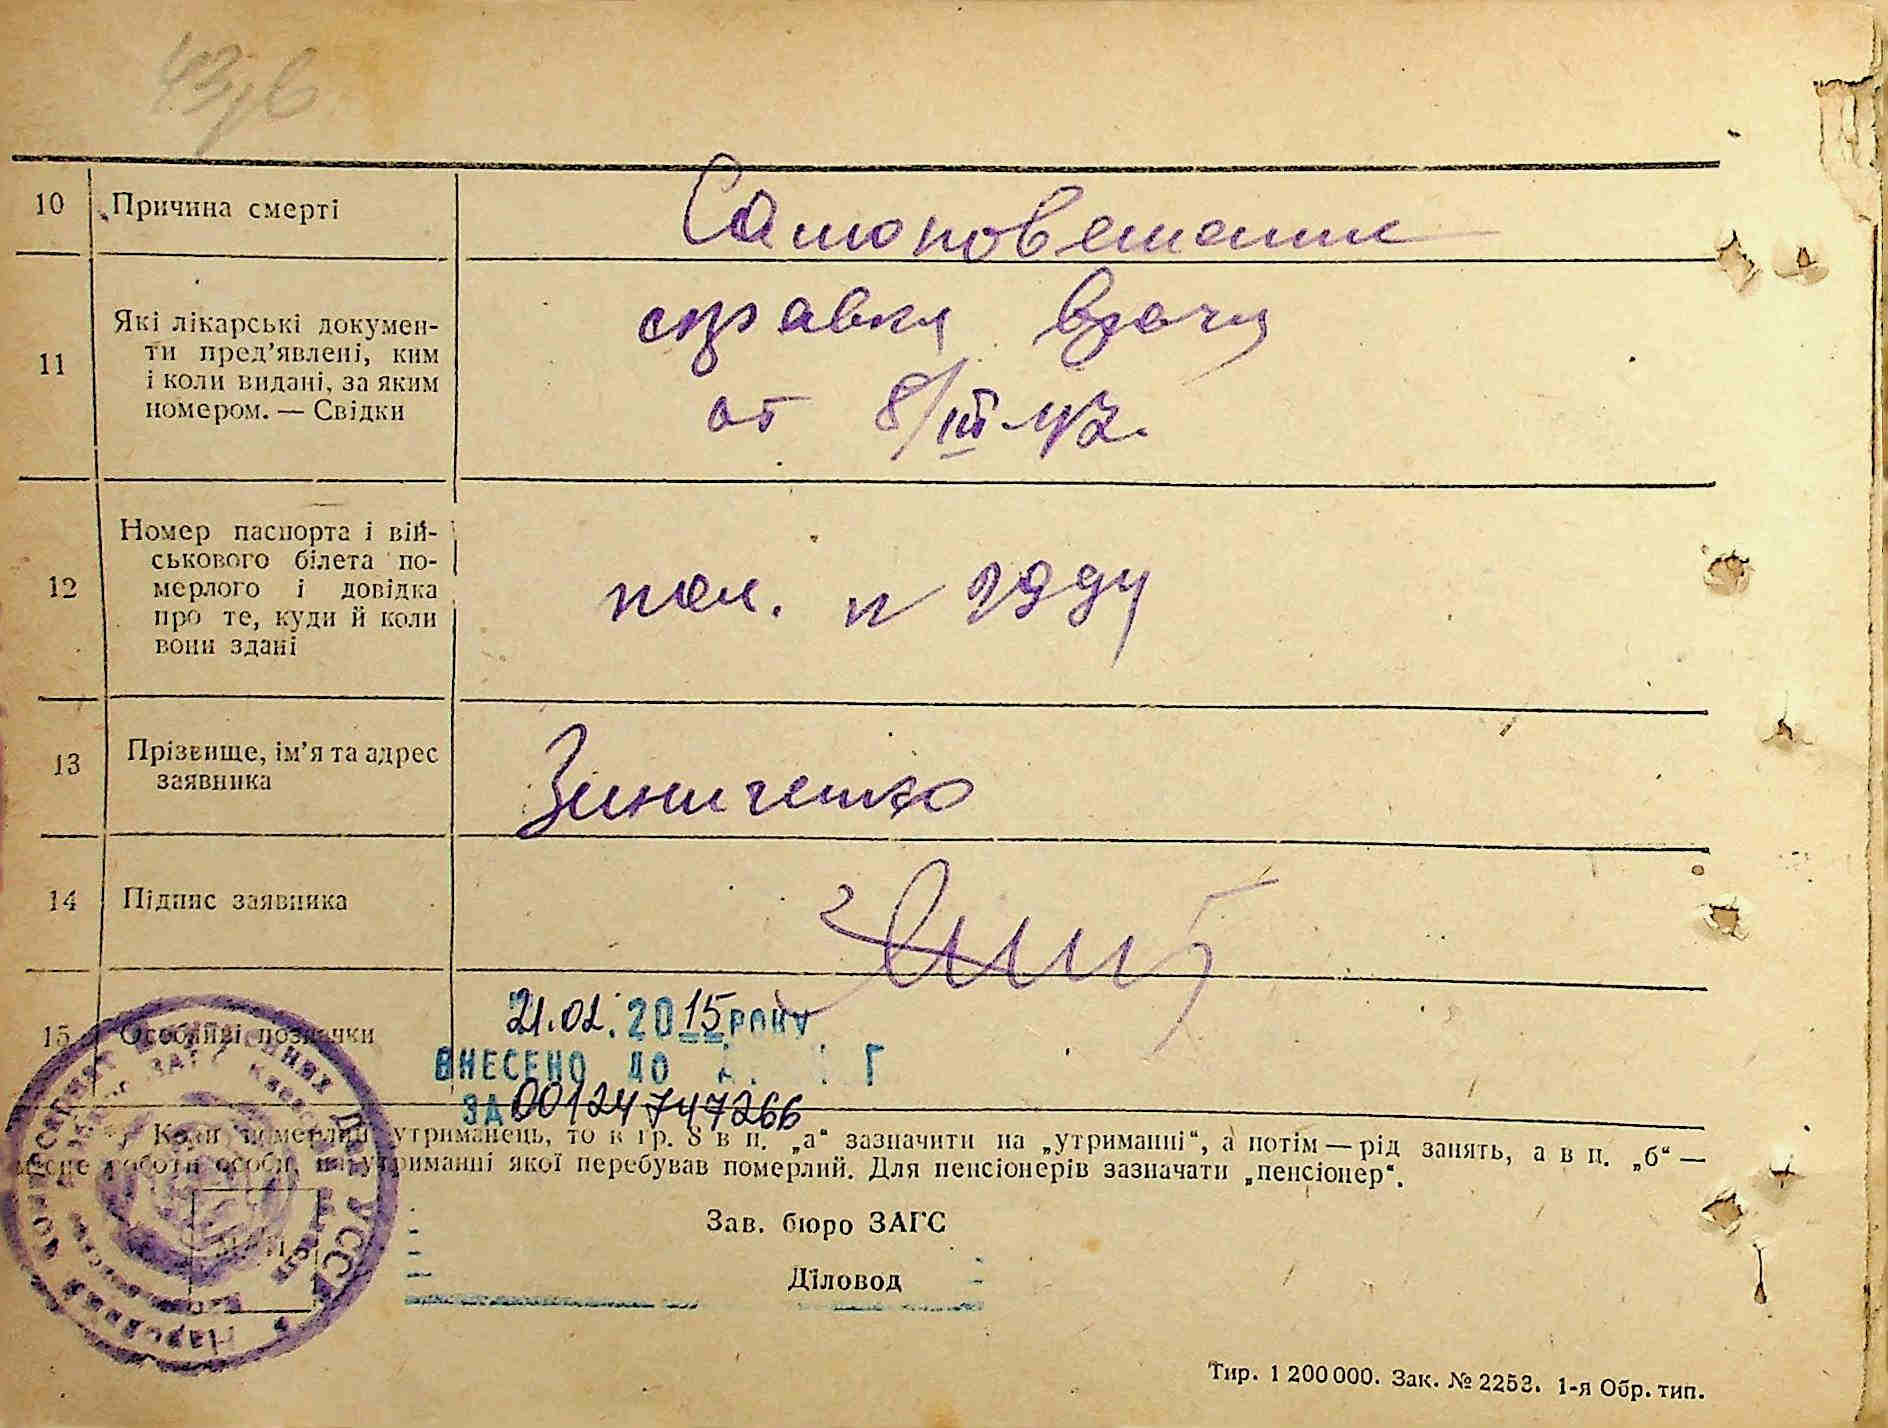 10 Причина смерті Самоповешение
11 Які лікарські докумен-
ти пред'явлені, ким
і коли видані, за яким
номером. — Свідки
справка врача
от 8/III-47.
12 Номер паспорта і вій-
ськового білета по-
мерлого і довідка
про те, куди й коли
вони здані
13 Прізвище, ім'я та адрес
заявника
Зинченко
14 Підпис заявника
15 Особливі позначки
21.02.2015 РОКУ
ВНЕСЕНО ДО
ЗА 00124747266
Коли померлий утриманець, то в гр. 8 в п. „а“ зазначити на „утриманні“, а потім — рід занять, а в п. „б“ —
місце роботи особи, на утриманні якої перебував померлий. Для пенсіонерів зазначати „пенсіонер“.
Зав. бюро ЗАГС
Діловод
Тир. 1 200 000. Зак. № 2253. 1-я Обр. тип.